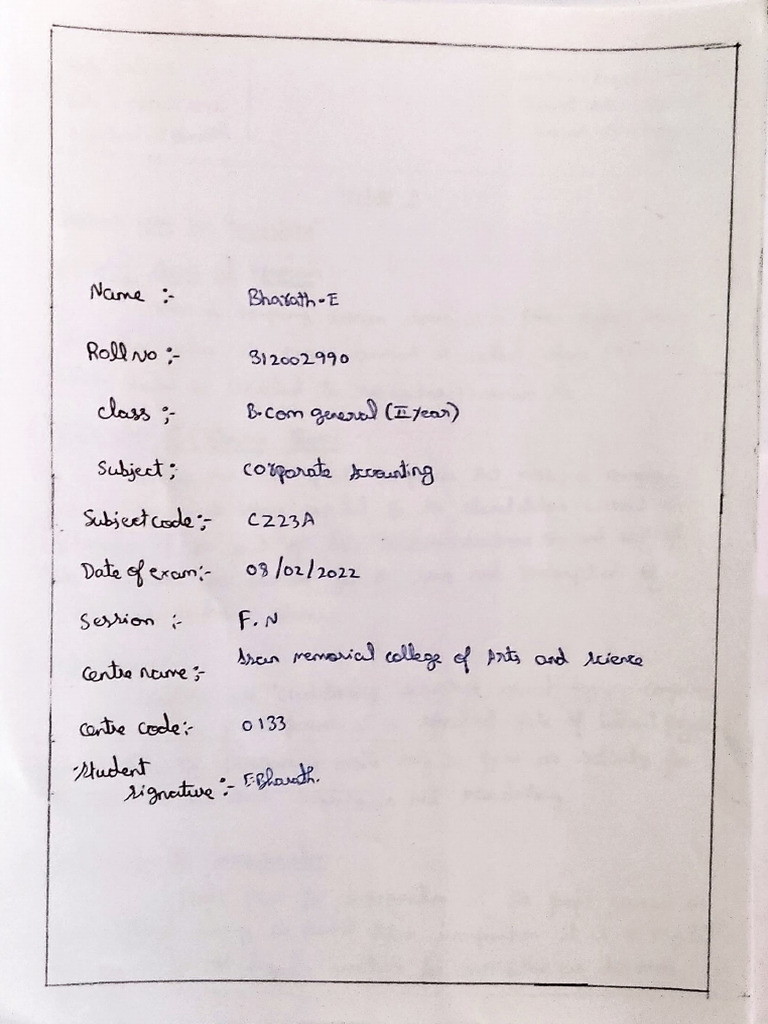 Name :- Bharath-E
Roll no :- 312002990
class :- B.com general (II year)
Subject : corporate Accounting
Subject code :- CZ23A
Date of exam :- 08/02/2022
Session :- F.N
Centre name :- memorial college of Arts and science
Centre code :- 0133
Student
signature :- E.Bharath.